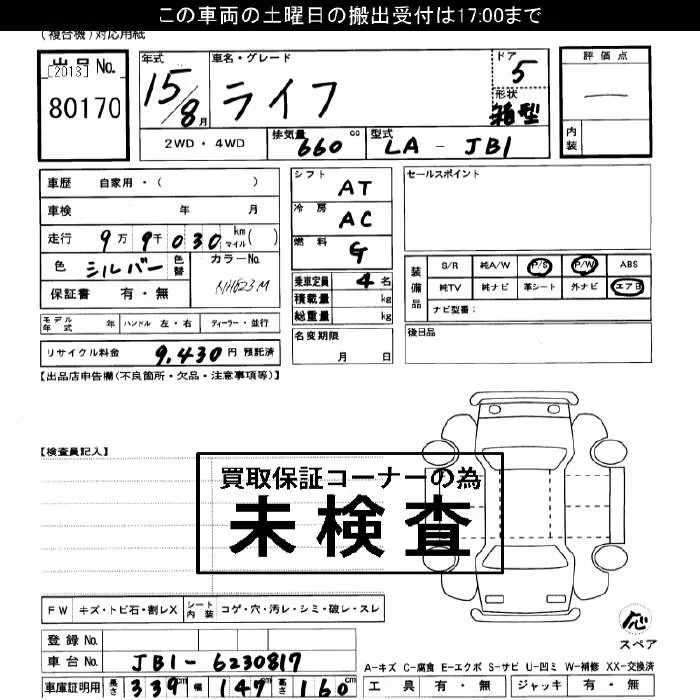 この車両の土曜日の搬出受付は17:00まで
(複合機)対応用紙
出品No.
[2013]
80170
年式
15/8月
車名・グレード
ライフ
ドア
5
形状
箱型
評価点
内装
2WD・4WD
排気量 660 cc
型式 LA - JB1
車歴 自家用・( )
車検 年 月
走行 9万9千030 km マイル( )
色 シルバー 色替
カラーNo. NH623M
保証書 有・無
シフト AT
冷房 AC
燃料 G
乗車定員 4名
積載量 kg
総重量 kg
名変期限
月 日
セールスポイント
装備品
S/R 純A/W P/S P/W ABS
純TV 純ナビ 革シート 外ナビ エアB
ナビ型番:
後日品
モデル年式 年 ハンドル 左・右 ディーラー・並行
リサイクル料金 9,430 円 預託済
【出品店申告欄(不良箇所・欠品・注意事項等)】
【検査員記入】
買取保証コーナーの為
未検査
FW キズ・トビ石・割レX シート内装 コゲ・穴・汚レ・シミ・破レ・スレ
登録No.
車台No. JB1-6230817
車庫証明用 長さ 339cm 幅 147cm 高さ 160cm
応
スペア
A-キズ C-腐食 E-エクボ S-サビ U-凹ミ W-補修 XX-交換済
工具 有・無 ジャッキ 有・無